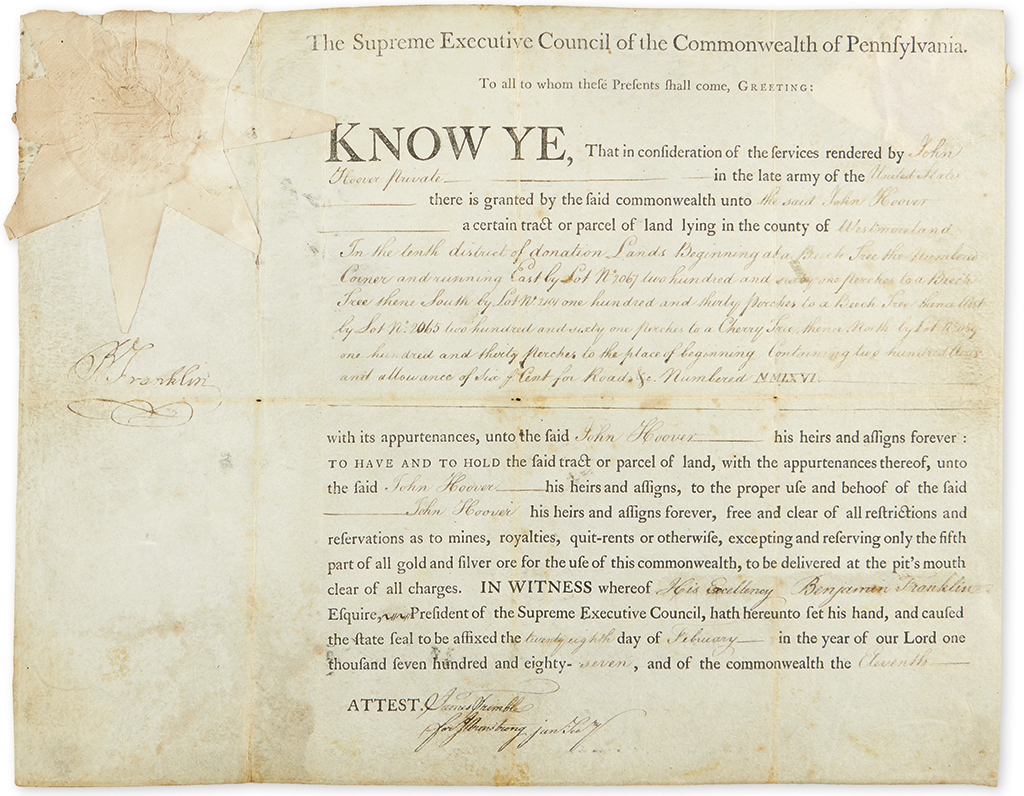 The Supreme Executive Council of the Commonwealth of Pennſylvania.
To all to whom theſe Preſents ſhall come, GREETING:
KNOW YE, That in conſideration of the ſervices rendered by John
Hoover Private in the late army of the United States
there is granted by the ſaid commonwealth unto the said John Hoover
a certain tract or parcel of land lying in the county of Westmoreland
In the tenth district of donation Lands Beginning at a Beech Tree the Numbered
Corner and running East by Lot No. 2067 two hundred and sixty one perches to a Beech
Tree thence South by Lot No. one hundred and thirty Perches to a Beech Tree thence West
by Lot No. 2065 two hundred and sixty one perches to a Cherry Tree, thence North by Lot No.
one hundred and thirty perches to the place of beginning Containing two hundred Acres
and allowance of Six P Cent for Roads &c. Numbered MMLXVI.
B Franklin
with its appurtenances, unto the ſaid John Hoover his heirs and aſſigns forever :
TO HAVE AND TO HOLD the ſaid tract or parcel of land, with the appurtenances thereof, unto
the ſaid John Hoover his heirs and aſſigns, to the proper uſe and behoof of the ſaid
John Hoover his heirs and aſſigns forever, free and clear of all reſtrictions and
reſervations as to mines, royalties, quit-rents or otherwiſe, excepting and reſerving only the fifth
part of all gold and ſilver ore for the uſe of this commonwealth, to be delivered at the pit's mouth
clear of all charges. IN WITNESS whereof His Excellency Benjamin Franklin
Eſquire, President of the Supreme Executive Council, hath hereunto ſet his hand, and cauſed
the ſtate ſeal to be affixed the twenty eighth day of February in the year of our Lord one
thouſand ſeven hundred and eighty- seven, and of the commonwealth the Eleventh
ATTEST. James Trimble
for J Armstrong jun Secy